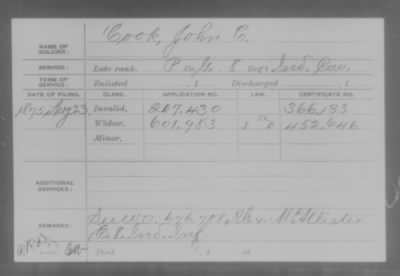 NAME OF SOLDIER: Cook, John C.
SERVICE: Late rank, Pvt. Co. 8 Regt Ind. Cav.
TERM OF SERVICE: Enlisted , 1 Discharged , 1
DATE OF FILING. CLASS. APPLICATION NO. LAW. CERTIFICATE NO.
1875, Aug 23. Invalid, 207.430 366.133
Widow, 601.983 452.646
Minor,
ADDITIONAL SERVICES:
REMARKS: See W.O. Alex. McAllister
E. 8. Ind. Inf.
Died , 1 at